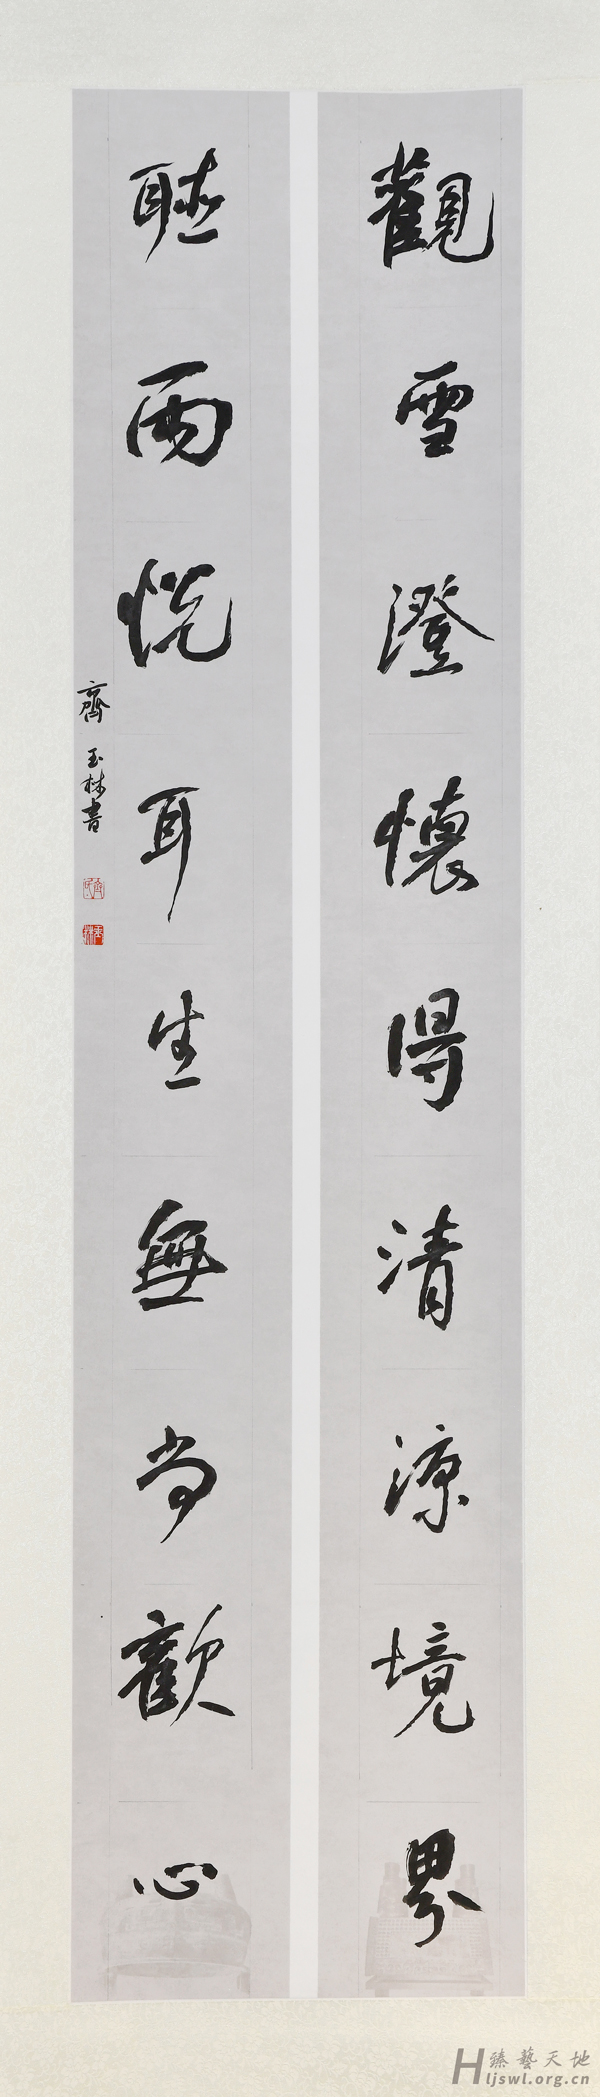 觀雪澄懷得清涼境界
聽雨悦耳生無尚歡心
齊玉林書
臻藝天地
Hljswl.org.cn